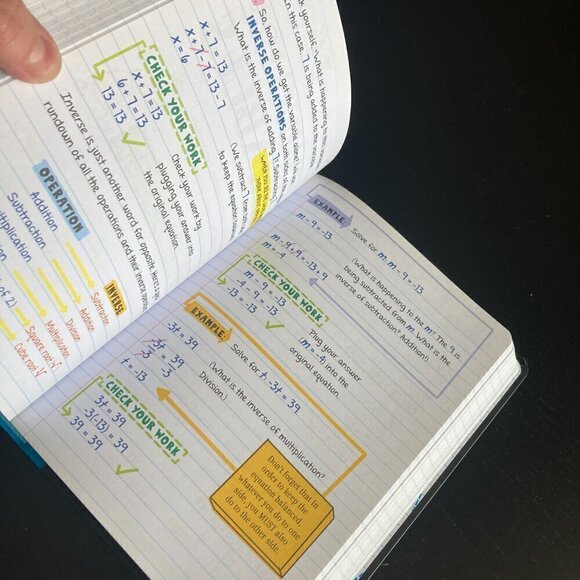 k yourself, "What is happening to the
In this case, 7 is being added to the variable
So, how do we get the variable alone? We use
INVERSE OPERATIONS on both sides
What is the inverse of adding 7? Subtracting
x + 7 = 13
x + 7 - 7 = 13 - 7
x = 6
(We subtract 7 from both
to keep the equation
CHECK YOUR WORK
x + 7 = 13
6 + 7 = 13
13 = 13
Check your work by
plugging your answer into
the original equation.
Inverse is just another word for opposite. Here's a
rundown of all the operations and their inverse operations:
OPERATION
INVERSE
Addition
Subtraction
Subtraction
Addition
ltiplication
Division
Multiplication
of 2)
Square root √
Cube root ∛
EXAMPLE:
Solve for m: m - 9 = -13
m - 9 = -13
(What is happening to the m? The 9 is
being subtracted from m. What is the
inverse of subtraction? Addition!)
m - 9 + 9 = -13 + 9
m = -4
CHECK YOUR WORK
m - 9 = -13
-4 - 9 = -13
-13 = -13
Plug your answer
(m = -4) into the
original equation.
EXAMPLE:
Solve for t: -3t = 39
-3t = 39
(What is the inverse of multiplication?
Division.)
-3t/-3 = 39/-3
t = -13
CHECK YOUR WORK
-3t = 39
-3(-13) = 39
39 = 39
Don't forget that in
order to keep the
equation balanced,
whatever you do to one
side, you MUST also
do to the other side.